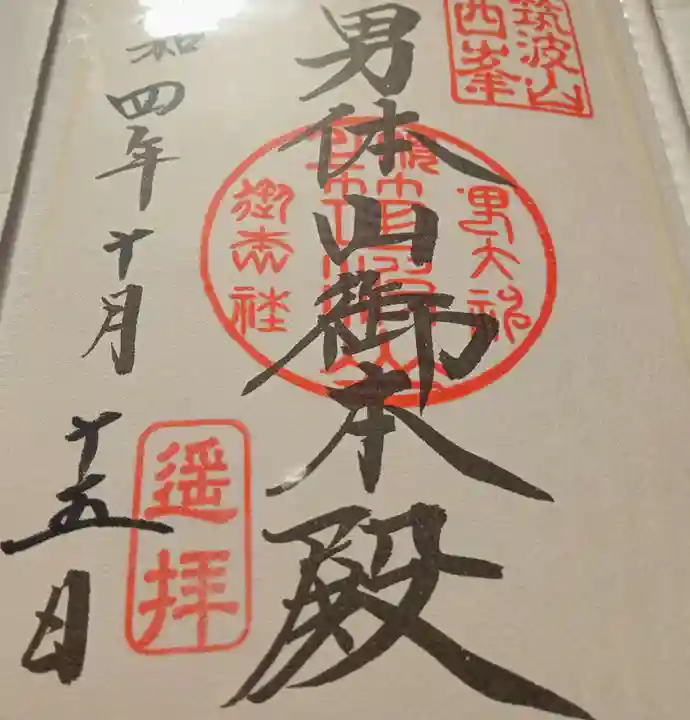 筑波山
西峯
男体山御本殿
男大神
御本社
遥拝
和四年十月
十五日